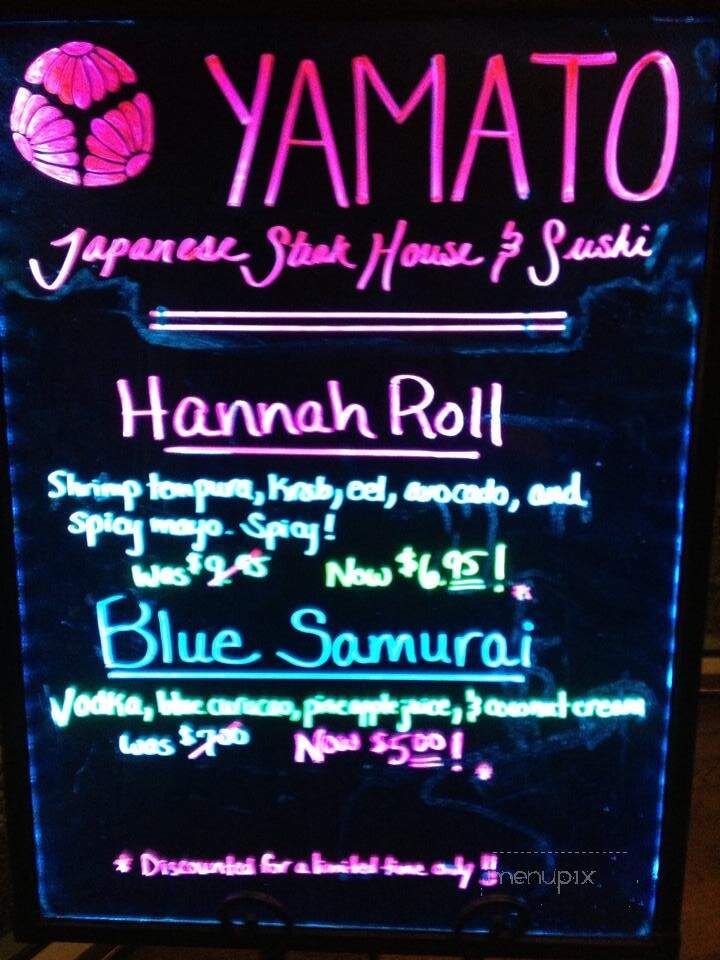 YAMATO
Japanese Steak House & Sushi
Hannah Roll
Shrimp tempura, Krab, eel, avocado, and
spicy mayo. Spicy!
Was $9.95 Now $6.95! *
Blue Samurai
Vodka, blue curacao, pineapple juice, & coconut cream
was $7.00 Now $5.00! *
* Discounted for a limited time only!!
menupix